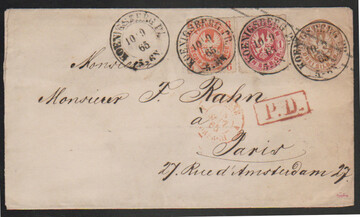 KOENIGSBERG PR.
10 9
63
KOENIGSBERG PR.
10 9
63
KOENIGSBERG PR.
10 9
63
KOENIGSBERG PR.
Monsieur
Monsieur F. Rahn
à
P.D.
Paris
27. Rue d'Amsterdam 27